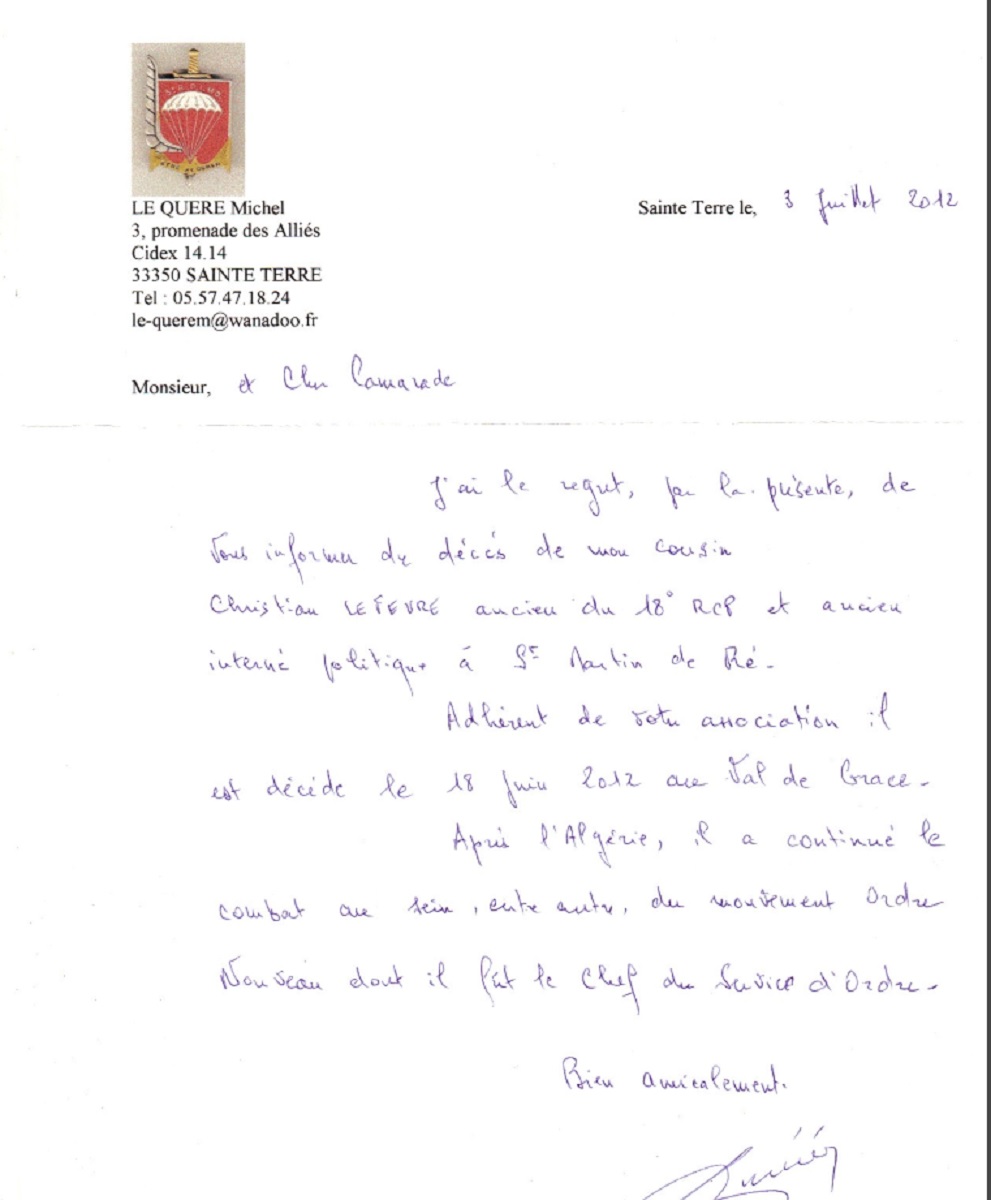 LE QUERE Michel
3, promenade des Alliés
Cidex 14.14
33350 SAINTE TERRE
Tel : 05.57.47.18.24
le-querem@wanadoo.fr
Sainte Terre le, 3 Juillet 2012
Monsieur, et Cher Camarade
J'ai le regret, par la présente, de
vous informer du décès de mon cousin
Christian LEFEVRE ancien du 18° RCP et ancien
interné politique à St Martin de Ré.
Adhérent de votre association il
est décédé le 18 Juin 2012 au Val de Grace.
Après l'Algérie, il a continué le
combat au sein, entre autre, du mouvement Ordre
Nouveau dont il fût le Chef du Service d'Ordre.
Bien amicalement.